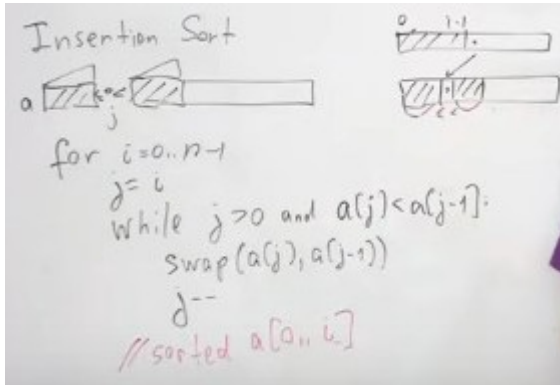 Insertion Sort
0 i-1
a
j
for i=0..n-1
j= i
while j>0 and a[j]<a[j-1]:
swap(a[j], a[j-1])
j--
//sorted a[0..i]